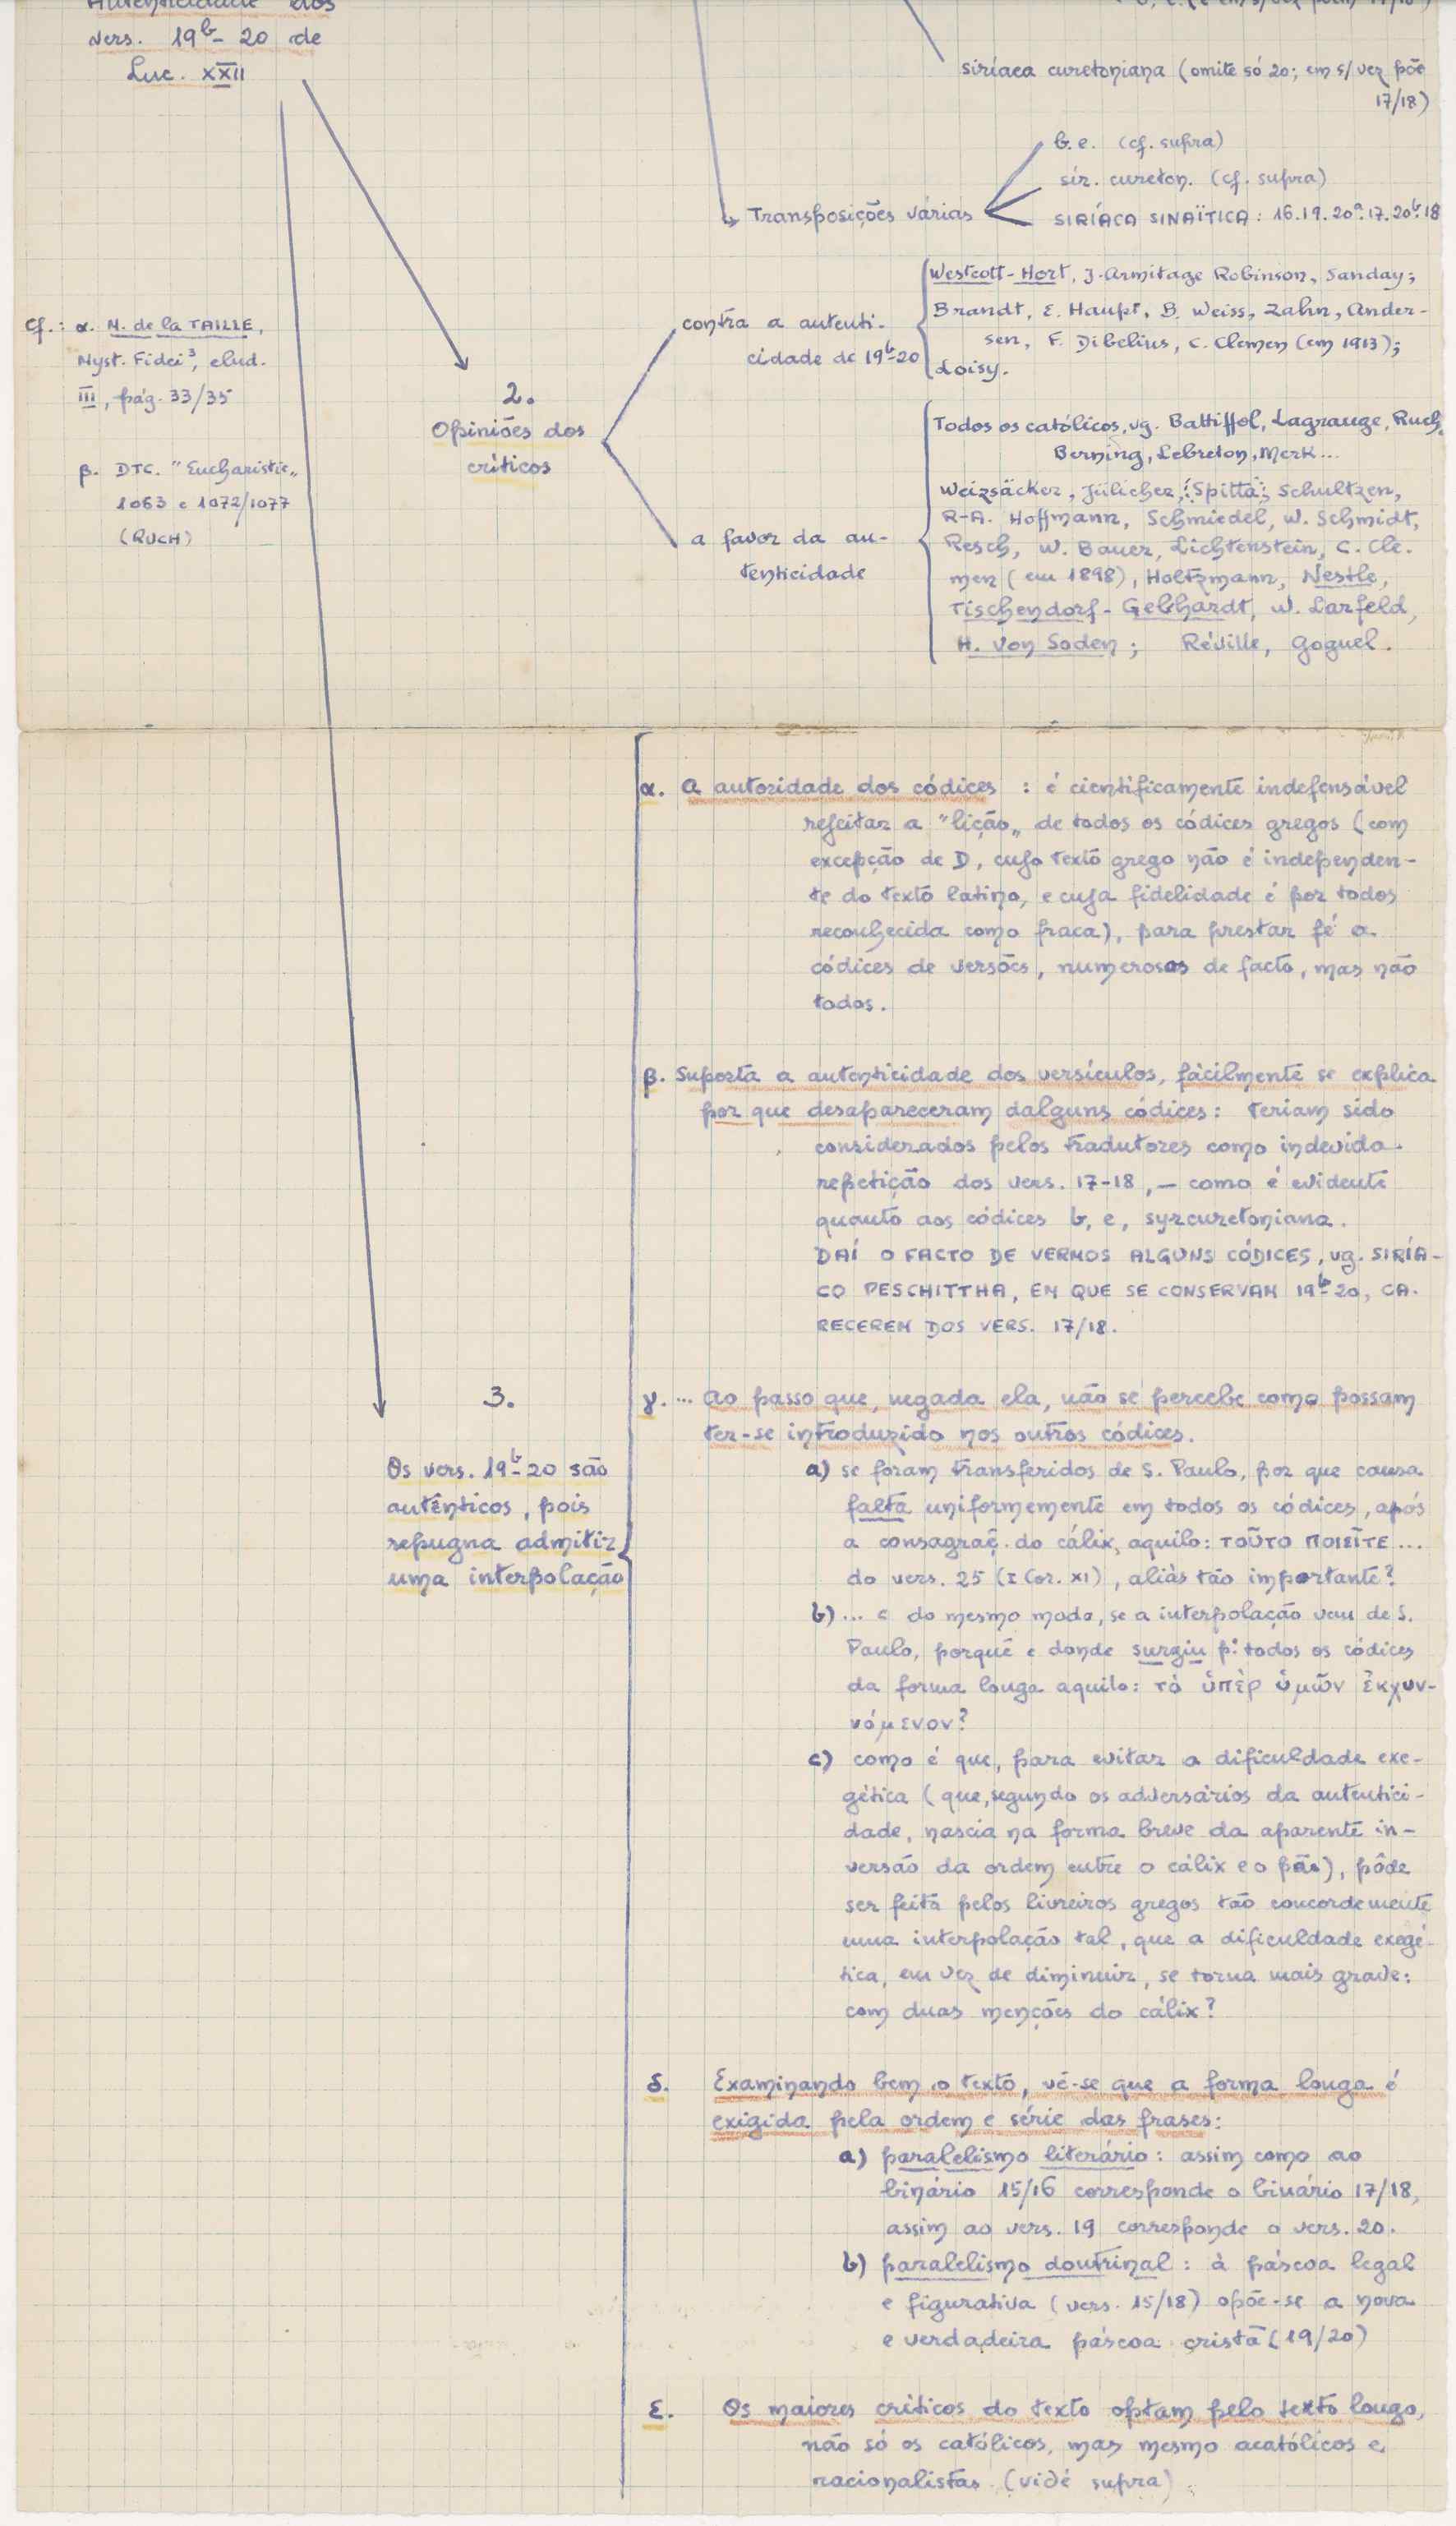 Autenticidade dos
vers. 19ᵇ- 20 de
Luc. XXII
siríaca curetoniana (omite só 20; em s/ vez põe
17/18)
Transposições várias
b.e. (cf. supra)
sir. cureton. (cf. supra)
SIRÍACA SINAÏTICA : 16.19.20ª.17.20ᵇ.18
cf.: α. M. de la TAILLE,
Myst. Fidei³, elud.
III, pág. 33/35
β. DTC. "Eucharistie„
1063 e 1072/1077
(RUCH)
2.
Opiniões dos
críticos
contra a autenti-
cidade de 19ᵇ-20
Westcott-Hort, J-Armitage Robinson, Sanday;
Brandt, E. Haupt, B. Weiss, Zahn, Ander-
sen, F. Dibelius, C. Clemen (em 1913);
Loisy.
a favor da au-
tenticidade
Todos os católicos, vg. Battiffol, Lagrange, Ruch,
Berning, Lebreton, Merk...
Weizsäcker, Jülicher, Spitta, Schultzen,
R-A. Hoffmann, Schmiedel, W. Schmidt,
Resch, W. Bauer, Lichtenstein, C. Cle-
men (em 1898), Holtzmann, Nestle,
Tischendorf- Gebhardt, W. Larfeld,
H. Von Soden; Réville, Goguel.
3.
Os vers. 19ᵇ-20 são
autênticos, pois
repugna admitir
uma interpolação
α. A autoridade dos códices : é cientificamente indefensável
rejeitar a "lição„ de todos os códices gregos (com
excepção de D, cujo texto grego não é independen-
te do texto latino, e cuja fidelidade é por todos
reconhecida como fraca), para prestar fé a
códices de versões, numerosos de facto, mas não
todos.
β. Suposta a autenticidade dos versículos, fàcilmente se explica
por que desapareceram dalguns códices: teriam sido
considerados pelos tradutores como indevida
repetição dos vers. 17-18, — como é evidente
quanto aos códices b, e, syrcuretoniana.
DAÍ O FACTO DE VERMOS ALGUNS CÓDICES, vg. SIRÍA-
CO PESCHITTHA, EM QUE SE CONSERVAM 19ᵇ-20, CA-
RECEREM DOS VERS. 17/18.
γ. ... Ao passo que, negada ela, não se percebe como possam
ter-se introduzido nos outros códices.
a) se foram transferidos de S. Paulo, por que causa
falta uniformemente em todos os códices, após
a consagraç. do cálix, aquilo: ΤΟῦΤΟ ΠΟΙΕῖΤΕ...
do vers. 25 (I Cor. XI), aliás tão importante?
b) ... e do mesmo modo, se a interpolação vem de S.
Paulo, porquê e donde surgiu p: todos os códices
da forma longa aquilo: τὸ ὑπὲρ ὑμῶν ἐκχυν-
νόμενον?
c) como é que, para evitar a dificuldade exe-
gética (que, segundo os adversários da autentici-
dade, nascia na forma breve da aparente in-
versão da ordem entre o cálix e o pão), pôde
ser feita pelos livreiros gregos tão concordemente
uma interpolação tal, que a dificuldade exegé-
tica, em vez de diminuir, se torna mais grave:
com duas menções do cálix?
δ. Examinando bem o texto, vê-se que a forma longa é
exigida pela ordem e série das frases:
a) paralelismo literário : assim como ao
binário 15/16 corresponde o binário 17/18,
assim ao vers. 19 corresponde o vers. 20.
b) paralelismo doutrinal : à páscoa legal
e figurativa (vers. 15/18) opõe-se a nova
e verdadeira páscoa cristã (19/20)
ε. Os maiores críticos do texto optam pelo texto longo,
não só os católicos, mas mesmo acatólicos e
racionalistas. (vidé supra).